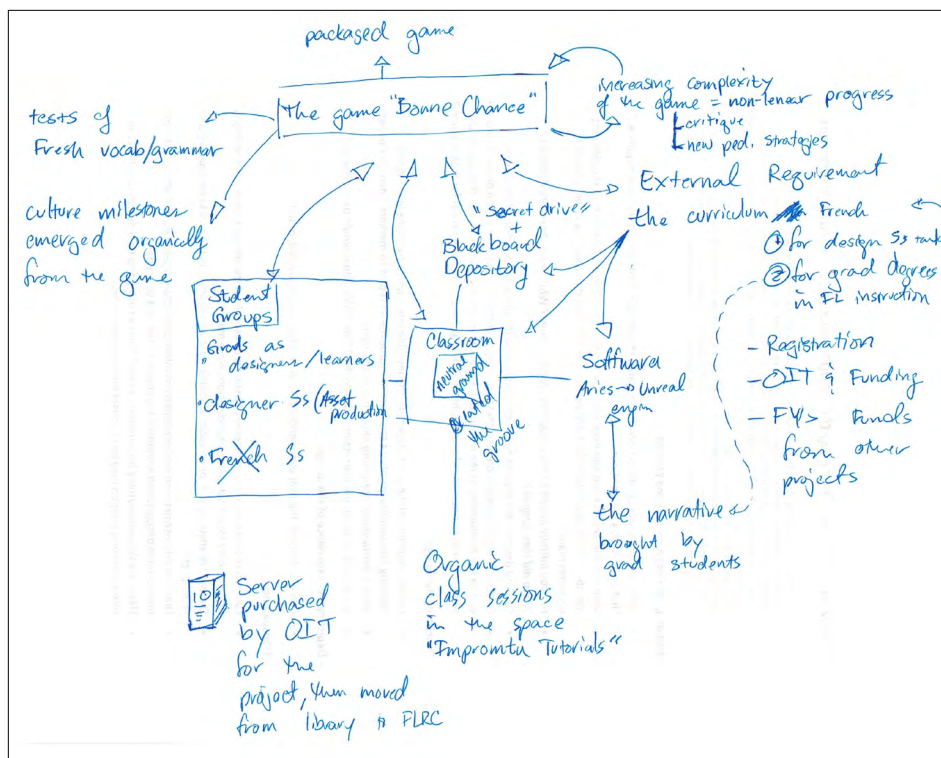 packased game
The game "Bonne Chance"
increasing complexity
of the game = non-lenear progress
critique
new ped. strategies
tests of
Fresh vocab/grammar
culture milestones
emerged organically
from the game
External Requirement
the curriculum French
① for design Ss
② for grad degrees
in FL instruction
- Registration
- OIT & Funding
- FYs Funds
from other
projects
"secret drive"
+
Blackboard
Depository
Stdent
Groups
• Grads as
designers/learners
• designer Ss (Asset
production
• French Ss
Classroom
Neutral
ground
created
the
groove
Software
Aries → Unreal
engin
the narrative
brought by
grad students
Organic
class sessions
in the space
"Impromtu Tutorials"
Server
purchased
by OIT
for the
project, then moved
from library to FLRC